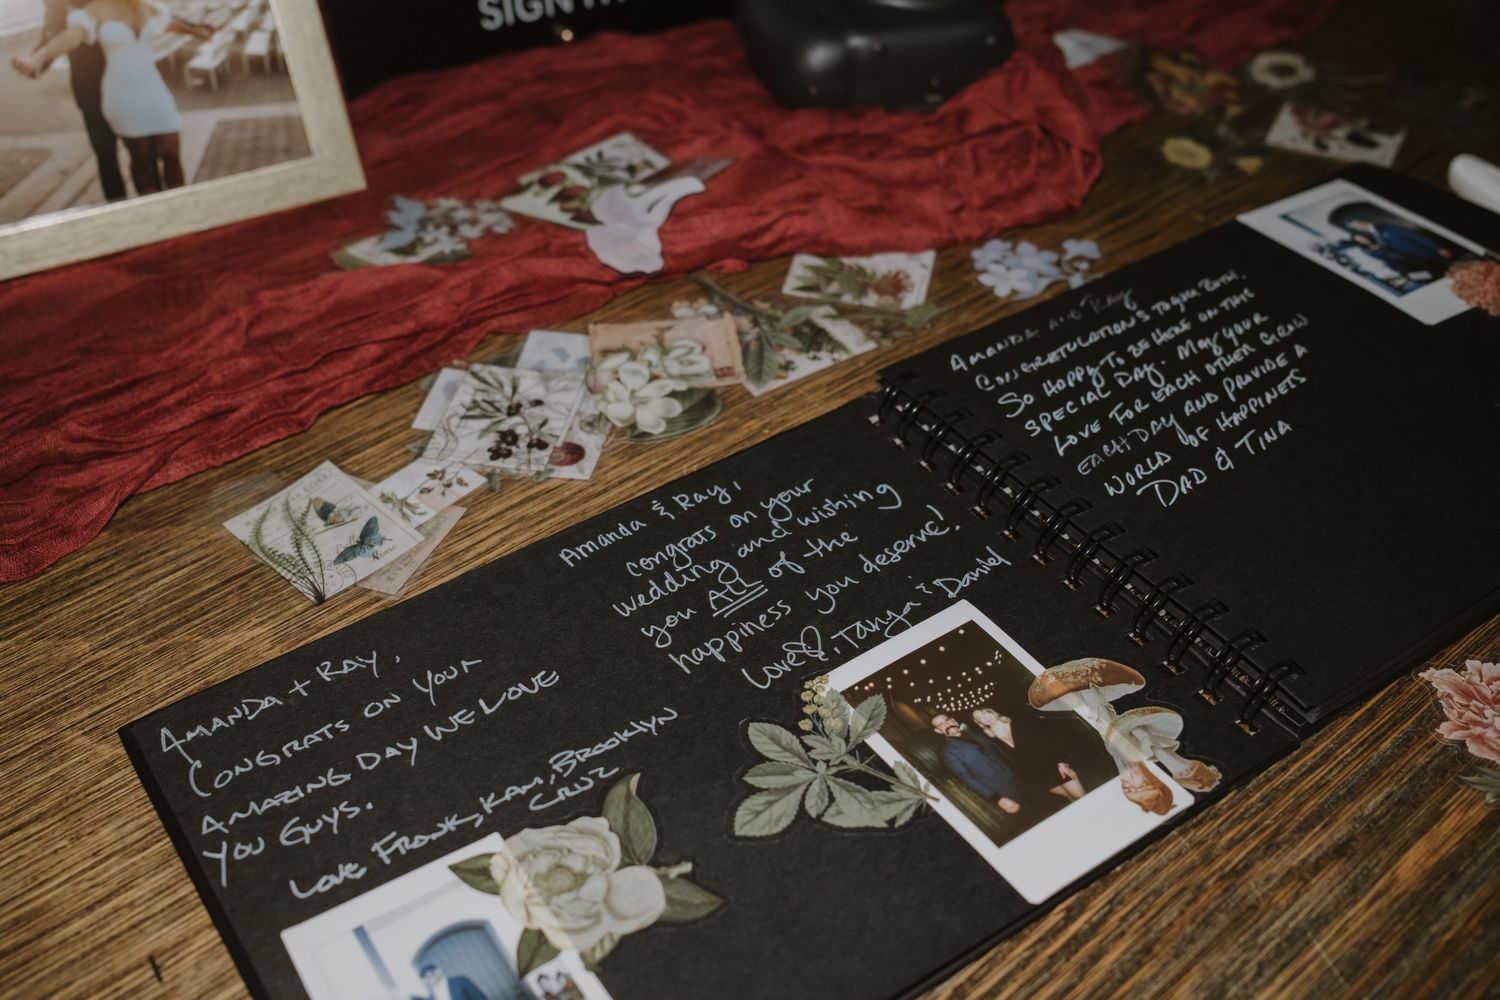 SIGN
AMANDA + RAY,
CONGRATS ON YOUR
AMAZING DAY WE LOVE
YOU GUYS.
LOVE FRANK, KAM, BROOKLYN
CRUZ
Amanda & Ray,
congrats on your
wedding and wishing
you ALL of the
happiness you deserve!
Love, Tanya & Daniel
AMANDA AND RAY
CONGRATULATIONS TO YOU BOTH.
SO HAPPY TO BE HERE ON THIS
SPECIAL DAY. MAY YOUR
LOVE FOR EACH OTHER GROW
EACH DAY AND PROVIDE A
WORLD OF HAPPINETS
DAD & TINA